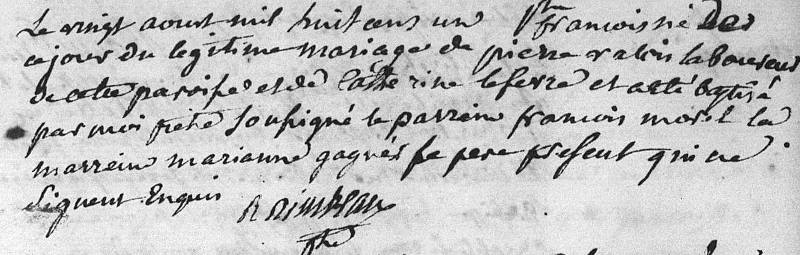 Le vingt aoust mil huit cens un francois né des
ce jour du legitime mariage de pierre valois laboureur
de cette paroisse et de Catherine lefevre et a eté baptisé
par moi pretre soussigné le parrein francois moril la
marreine marianne gagnés le pere present qui ne
signent Enquis
ptre